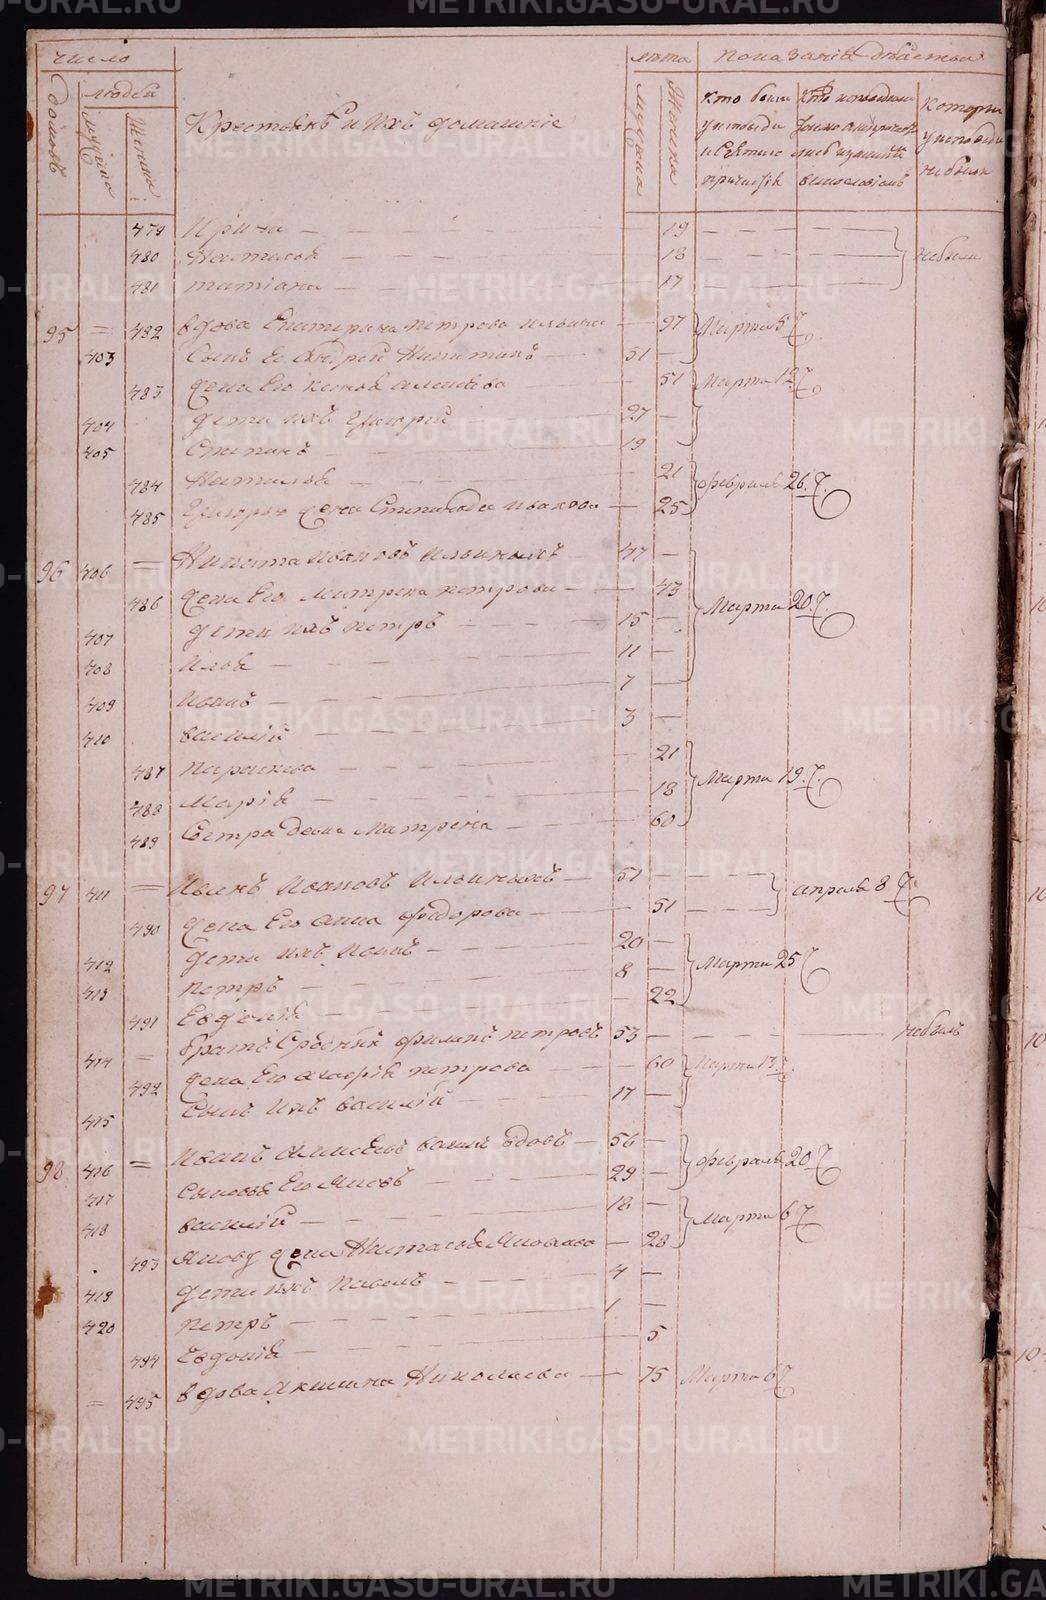 METRIKI.GASO-URAL.RU
число
лѣта
показанiе действа
домовъ
людей
мущинъ
женщинъ
мужска
женска
Крестьянѣ и ихъ домашнiе
кто были
у исповѣди
и святаго
причастiя
Кто исповѣдались
которые
у исповѣди
небыли
479 Ирина — 19
480 Наталья — 18 небыли
481 татiана — 17
95 = 482 вдова Екатерина петрова Ильина — 97 Марта 5
403 Сынъ Ее Андрей Никитинъ — 51 —
483 жена Его Алексѣева 51 Марта 12
404 дети ихъ Григорiй 27 —
405 Степанъ — 19
484 Наталья — 21 февраля 26.
485 Григорью жена Степанида иванова — 25
96 406 = Никита Ивановъ Ильиныхъ — 47 —
486 жена Его Матрена петрова — 43 Марта 20.
407 дети ихъ петръ — 15 —
408 Илья — 11 —
409 Иванъ — 7 —
410 василiй — 3 —
487 параскева — 21
488 Марiя — 18 Марта 19.
489 Сестра девка Матрена — 60
97 411 = Иванъ Ивановъ Ильиныхъ — 51 — апреля 8
490 жена Его Анна федорова — 51
412 дети ихъ Иванъ — 20 — Марта 25
413 петръ — 8 —
491 Евдокiя — 22
414 = братъ Сродный филипъ петровъ 53 — небылъ
492 жена Его Агафiя петрова — 60 Марта 13
415 Сынъ ихъ василiй — 17 —
98 416 = Иванъ Алексѣевъ вдовъ — 56 — февраля 20
417 Сыновья Его Яковъ — 29 —
418 василiй — 18 — Марта 6
493 Якову жена Настасья Яковлева — 28
419 дети ихъ Павелъ — 4 —
420 петръ — 1 —
494 Евдокiя — 5
= 495 вдова Акилина Николаева — 75 Марта 6